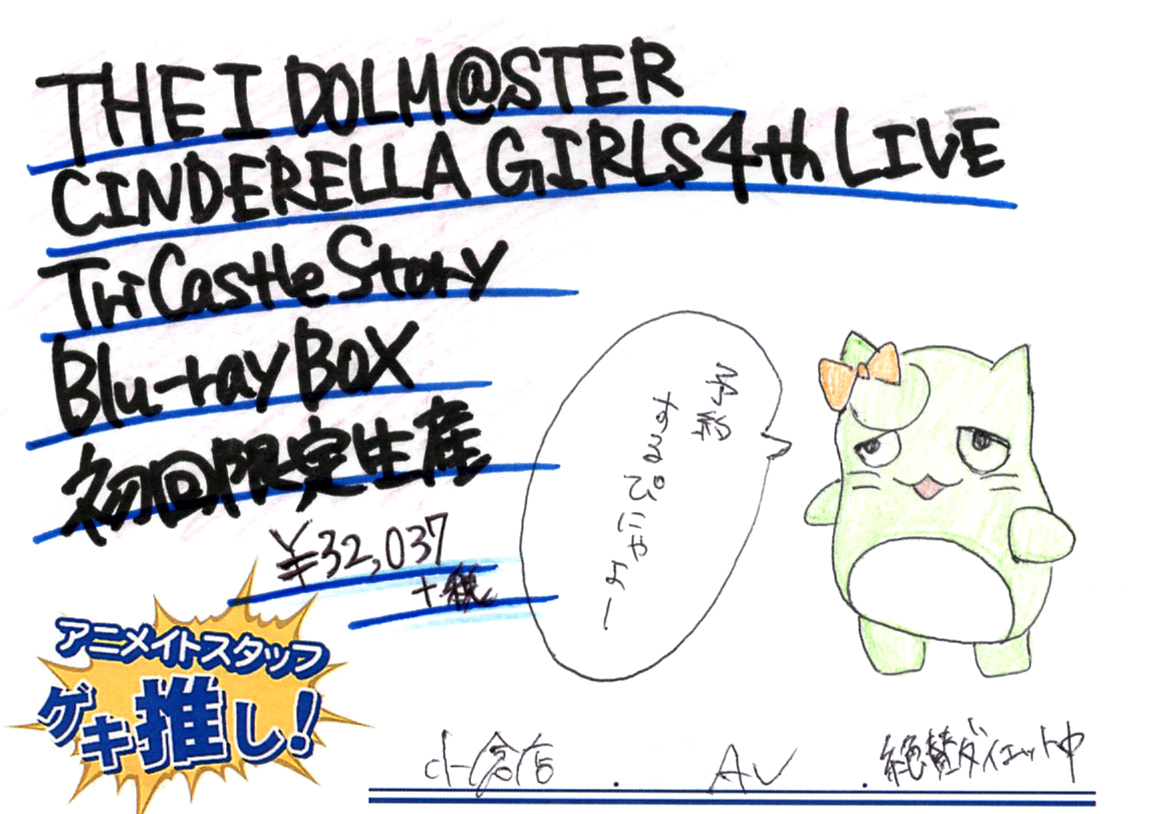 THE IDOLM@STER
CINDERELLA GIRLS 4th LIVE
TriCastle Story
Blu-ray Box
初回限定生産
¥32,037
+税
予約
するぴにゃよー
アニメイトスタッフ
ゲキ推し!
小倉店 . AV . 絶賛ダイエット中